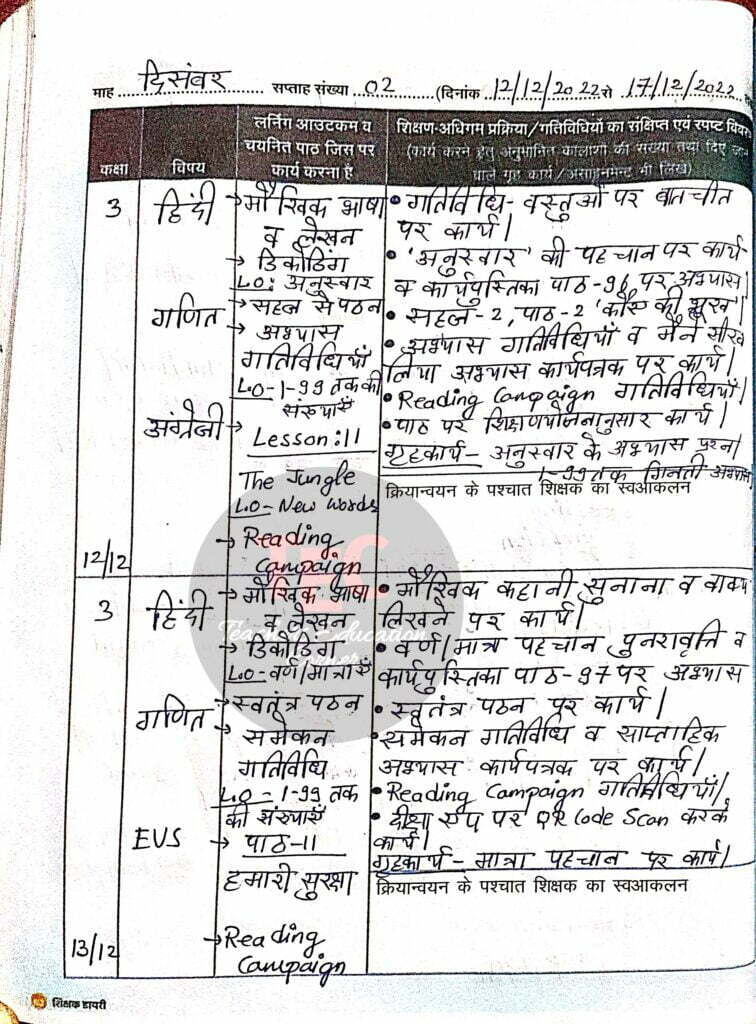 माह दिसंबर सप्ताह संख्या 02 (दिनांक 12/12/2022 से 17/12/2022
कक्षा
विषय
लर्निंग आउटकम व
चयनित पाठ जिस पर
कार्य करना है
शिक्षण-अधिगम प्रक्रिया/गतिविधियों का संक्षिप्त एवं स्पष्ट
(कार्य करने हेतु अनुमानित कालांशों की संख्या तथा दिए
वाले गृह कार्य/असाइनमेंट भी लिखें)
3
हिंदी
गणित
अंग्रेजी
12/12
→ मौखिक भाषा
व लेखन
→ डिकोडिंग
L.O: अनुस्वार
→ सहज से पठन
→ अभ्यास
गतिविधियाँ
L.O-1-99 तक की
संख्याएँ
Lesson:11
The Jungle
L.O- New words
→ Reading
Campaign
• गतिविधि- वस्तुओं पर बातचीत
पर कार्य।
• 'अनुस्वार' की पहचान पर कार्य
व कार्यपुस्तिका पाठ-96 पर अभ्यास।
• सहज-2, पाठ-2 'की भूख'।
• अभ्यास गतिविधियाँ व मैंने सीख
लिया अभ्यास कार्यपत्रक पर कार्य।
• Reading Campaign गतिविधियाँ।
• पाठ पर शिक्षणयोजनानुसार कार्य।
गृहकार्य- अनुस्वार के अभ्यास प्रश्न।
1-99 तक गिनती अभ्यास
क्रियान्वयन के पश्चात शिक्षक का स्वआकलन
3
हिंदी
गणित
EVS
13/12
→ मौखिक भाषा
व लेखन
→ डिकोडिंग
L.O-वर्ण/मात्राएँ
→ स्वतंत्र पठन
→ समेकन
गतिविधि
L.O- 1-99 तक
की संख्याएँ
→ पाठ-11
हमारी सुरक्षा
→ Reading
Campaign
• मौखिक कहानी सुनाना व वाक्य
लिखने पर कार्य।
• वर्ण/मात्रा पहचान पुनरावृत्ति व
कार्यपुस्तिका पाठ-97 पर अभ्यास
• स्वतंत्र पठन पर कार्य।
• समेकन गतिविधि व साप्ताहिक
अभ्यास कार्यपत्रक पर कार्य।
• Reading Campaign गतिविधियाँ।
• दीक्षा एप पर QR Code Scan करके
कार्य।
गृहकार्य- मात्रा पहचान पर कार्य।
क्रियान्वयन के पश्चात शिक्षक का स्वआकलन
TEC
Teacher Education
Corner
शिक्षक डायरी